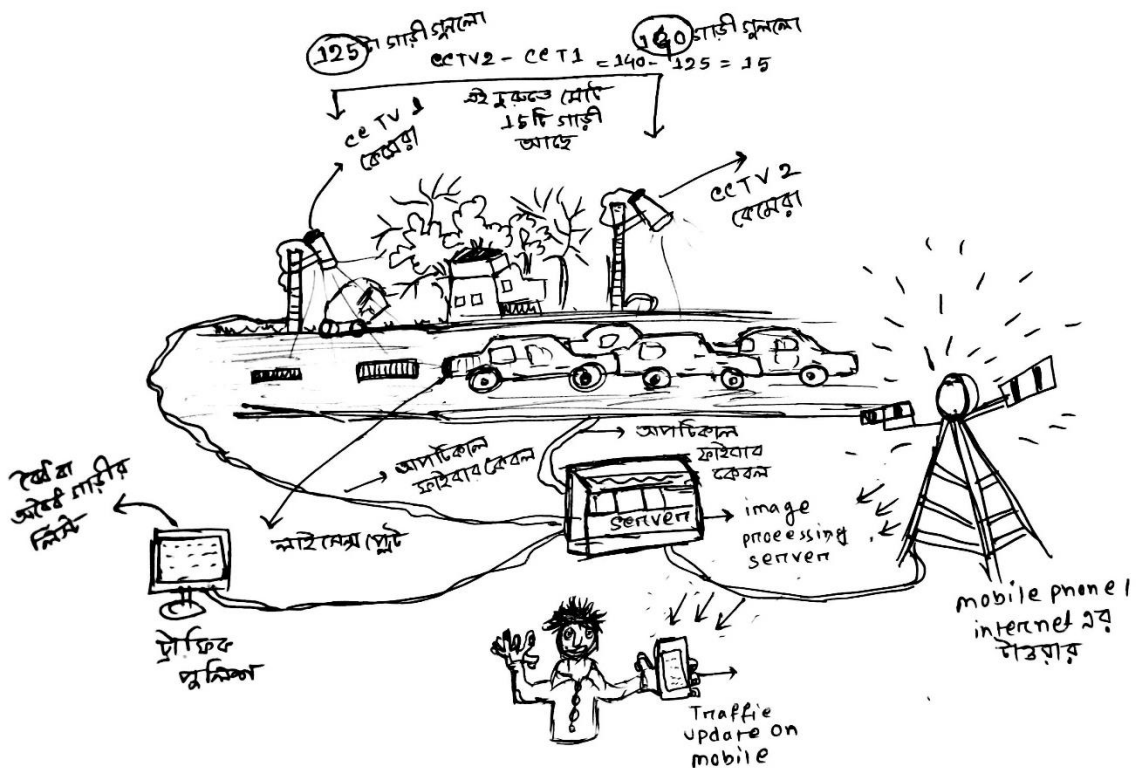 125 টা গাড়ী গুনলো
140 গাড়ী গুনলো
CCTV2 - CCT1 = 140 - 125 = 15
এই দুরুত্তে মোট
15টি গাড়ী
আছে
CCTV 1
কেমেরা
CCTV 2
কেমেরা
অপটিকাল
ফাইবার কেবল
অপটিকাল
ফাইবার
কেবল
বৈধ বা
অবৈধ গাড়ীর
লিস্ট
লাইসেন্স প্লেট
server
image
processing
server
ট্রাফিক
পুলিশ
mobile phone /
internet এর
টাওয়ার
Traffic
update on
mobile